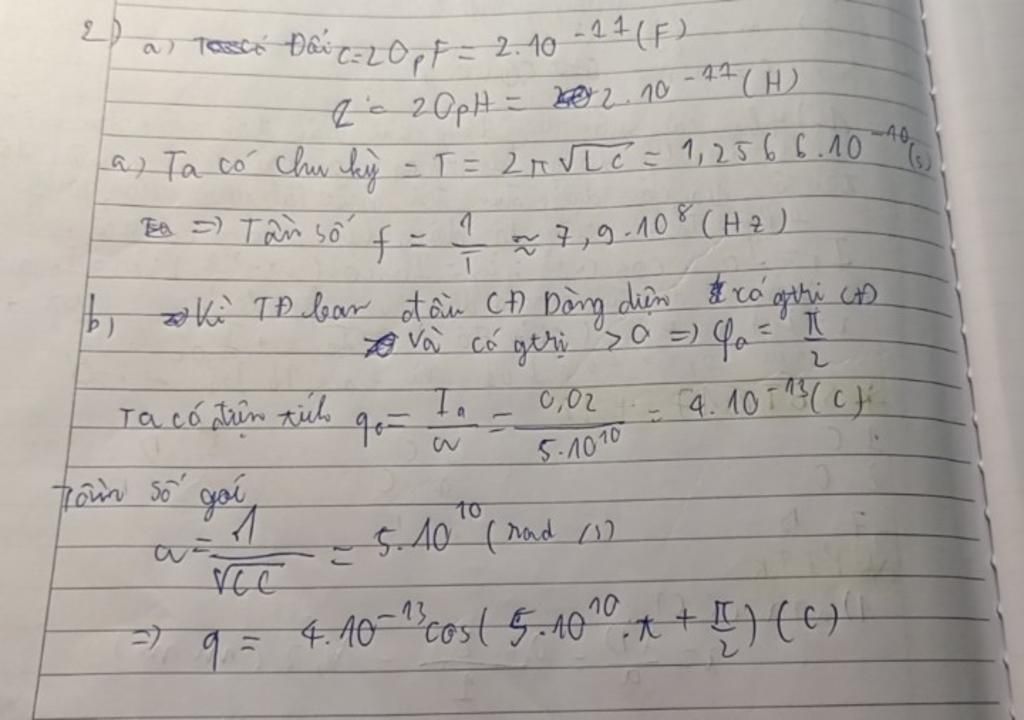 2) a) Đổi C=20pF = 2.10^-11 (F)
L = 20pH = 2.10^-11 (H)
a) Ta có chu kỳ = T = 2π√LC = 1,2566.10^-10 (s)
=> Tần số f = 1/T ≈ 7,9.10^8 (Hz)
b, Kì TĐ ban đầu (+) Dòng điện có gtrị (+)
và có gtrị >0 => φ₀ = π/2
Ta có điện tích q₀ = I₀/ω = 0,02/5.10^10 = 4.10^-13 (C)
Tần số góc
ω = 1/√LC = 5.10^10 (rad/s)
=> q = 4.10^-13 cos(5.10^10.π + π/2) (C)